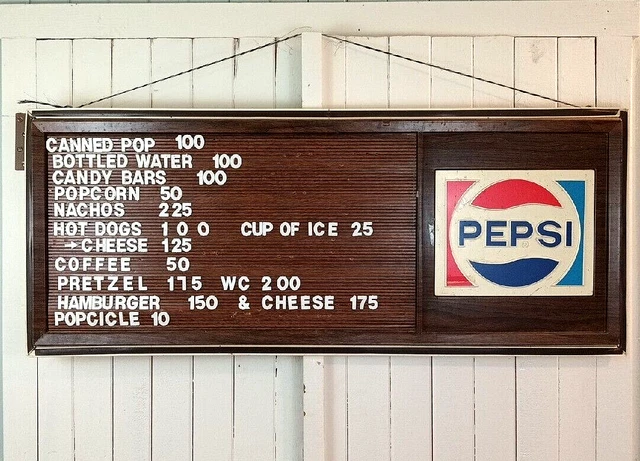 CANNED POP 100
BOTTLED WATER 100
CANDY BARS 100
POPCORN 50
NACHOS 225
HOT DOGS 100 CUP OF ICE 25
→CHEESE 125
COFFEE 50
PRETZEL 175 WC 200
HAMBURGER 150 & CHEESE 175
POPCICLE 10
PEPSI